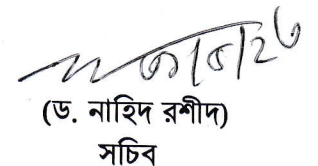 (ড. নাহিদ রশীদ)
সচিব